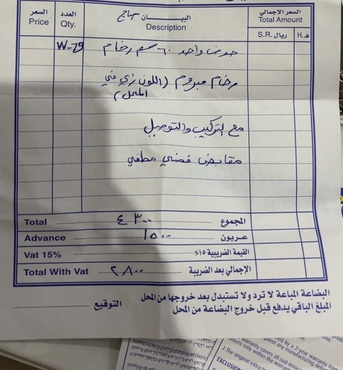 السعر العدد البيـــــــان السعر الإجمالي
Price Qty. Description Total Amount
S.R. ريال H. هـ
W-79 حوض واحد ٦٠ سم رخام
رخام مبروم (اللون زي في
المحل)
مع التركيب والتوصيل
مقابض فضي مطفي
Total ٤٣٠٠ المجموع
Advance ١٥٠٠ عـــربون
Vat 15% القيمة الضريبية ١٥٪
Total With Vat ٢٨٠٠ الإجمالي بعد الضريبة
البضاعة المباعة لا ترد ولا تستبدل بعد خروجها من المحل
المبلغ الباقي يدفع قبل خروج البضاعة من المحل التوقيع